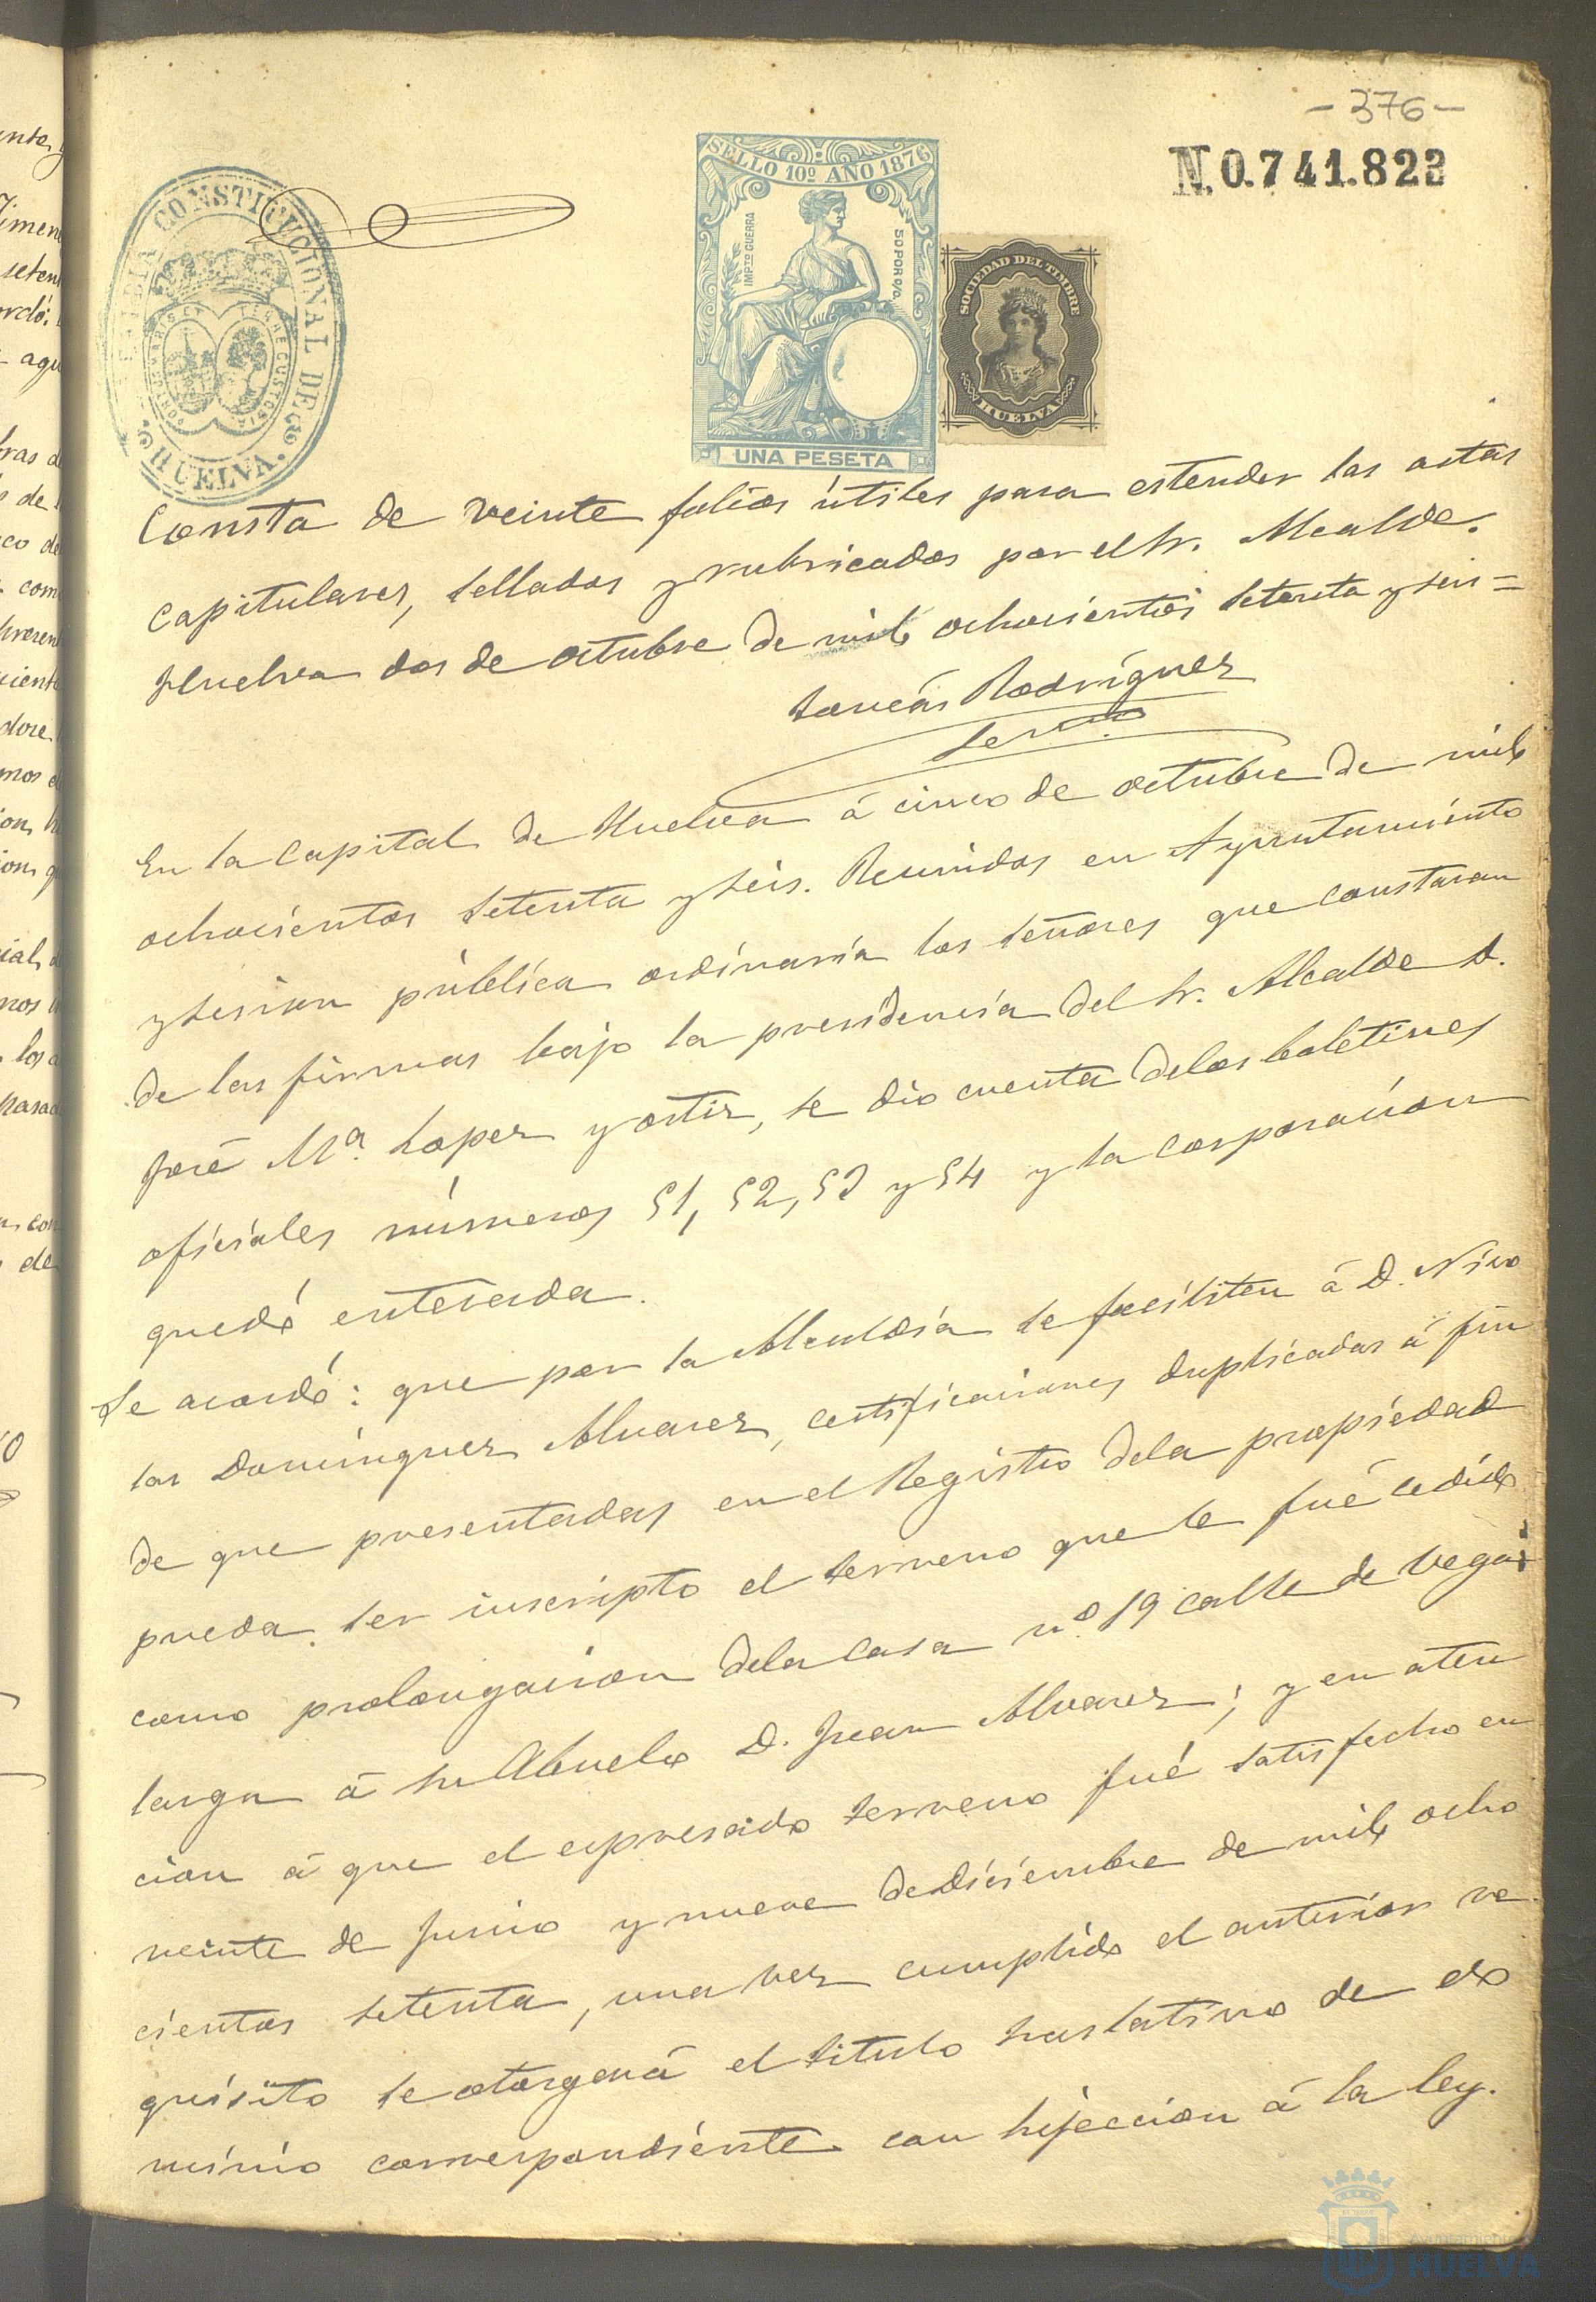 - 376 -
N.0.741.823
ALCALDIA CONSTITUCIONAL DE HUELVA.
PORTUS MARIS ET TERRE CUSTODIA
SELLO 10º AÑO 1876
IMPTO GUERRA
50 POR 0/0.
UNA PESETA
SOCIEDAD DEL TIMBRE
HUELVA
Consta de veinte folios útiles para estender las actas
capitulares, sellados y rubricados por el Sr. Alcalde.
Huelva dos de octubre de mil ochocientos setenta y seis =
Tomás Rodríguez
Serio
En la Capital de Huelva á cinco de octubre de mil
ochocientos setenta y seis. Reunidos en Ayuntamiento
y sesion pública ordinaria los señores que constaran
de las firmas bajo la presidencia del Sr. Alcalde D.
José Mª. Lopez y ortiz, se dio cuenta delos boletines
oficiales números 51, 52, 53 y 54 y la corporacion
quedó enterada.
Se acordó: que por la Alcaldía se faciliten á D. Nico
las Dominguez Alvarez, certificaciones duplicadas á fin
de que presentadas en el Registro dela propiedad
pueda ser inscripto el terreno que le fué cedido
como prolongacion dela Casa nº. 19 calle de Vega
larga á su Abuelo D. Juan Alvarez; y en aten
cion á que el espresado terreno fué satisfecho en
veinte de Junio y nueve de Diciembre de mil ocho
cientos setenta, una vez cumplido el anterior re
quisito se otorgará el titulo traslativo de do
minio correspondiente con sujeccion á la ley.
Ayuntamiento
HUELVA